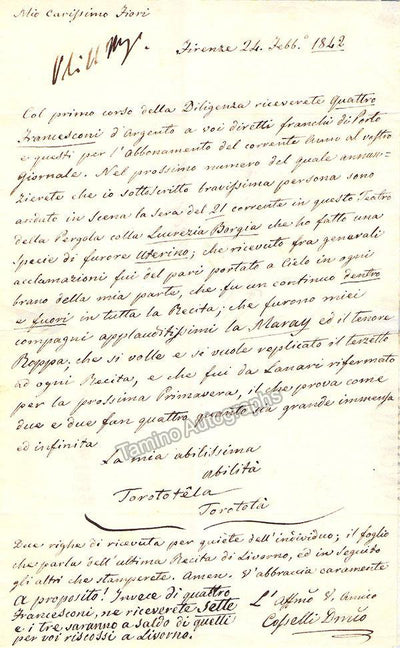 Mio Carissimo Fiori
Firenze 24. Febb.º 1842
Col primo corso della Diligenza riceverete Quattro
Francesconi d'Argento a voi diretti franchi di Porto
e questi per l'Abbonamento del corrente Anno al vostro
Giornale. Nel prossimo numero del quale annun-
zierete che io sottoscritto bravissima persona sono
andato in scena la sera del 21 corrente in questo Teatro
della Pergola colla Lucrezia Borgia che ho fatto una
specie di furore Uterino; che ricevuto fra generali
acclamazioni fui del pari portato a Cielo in ogni
brano della mia parte, che fu un continuo dentro
e fuori in tutta la Recita; che furono miei
compagni applauditissimi la Maray ed il tenore
Roppa, che si volle e si vuole replicato il terzetto
ad ogni Recita, e che fui da Lanari rifermato
per la prossima Primavera, il che prova come
due e due fan quattro quanto sia grande immensa
ed infinita
La mia abilissima
abilità
Torototêla
Torototà
Due righe di ricevuta per quiete dell'individuo; il foglio
che parla dell'ultima Recita di Livorno, ed in seguito
gli altri che stamperete. Amen. V'abbraccio caramente
A proposito! Invece di quattro
Francesconi, ne riceverete sette
e i tre saranno a saldo di quelli
per voi riscossi a Livorno.
L'Affmo V. Amico
Cosselli Dmco
Tamino Autographs